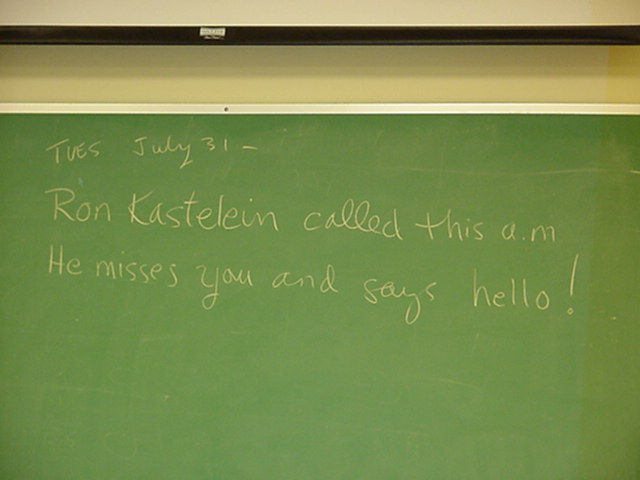 TUES July 31 -
Ron Kastelein called this a.m
He misses you and says hello!